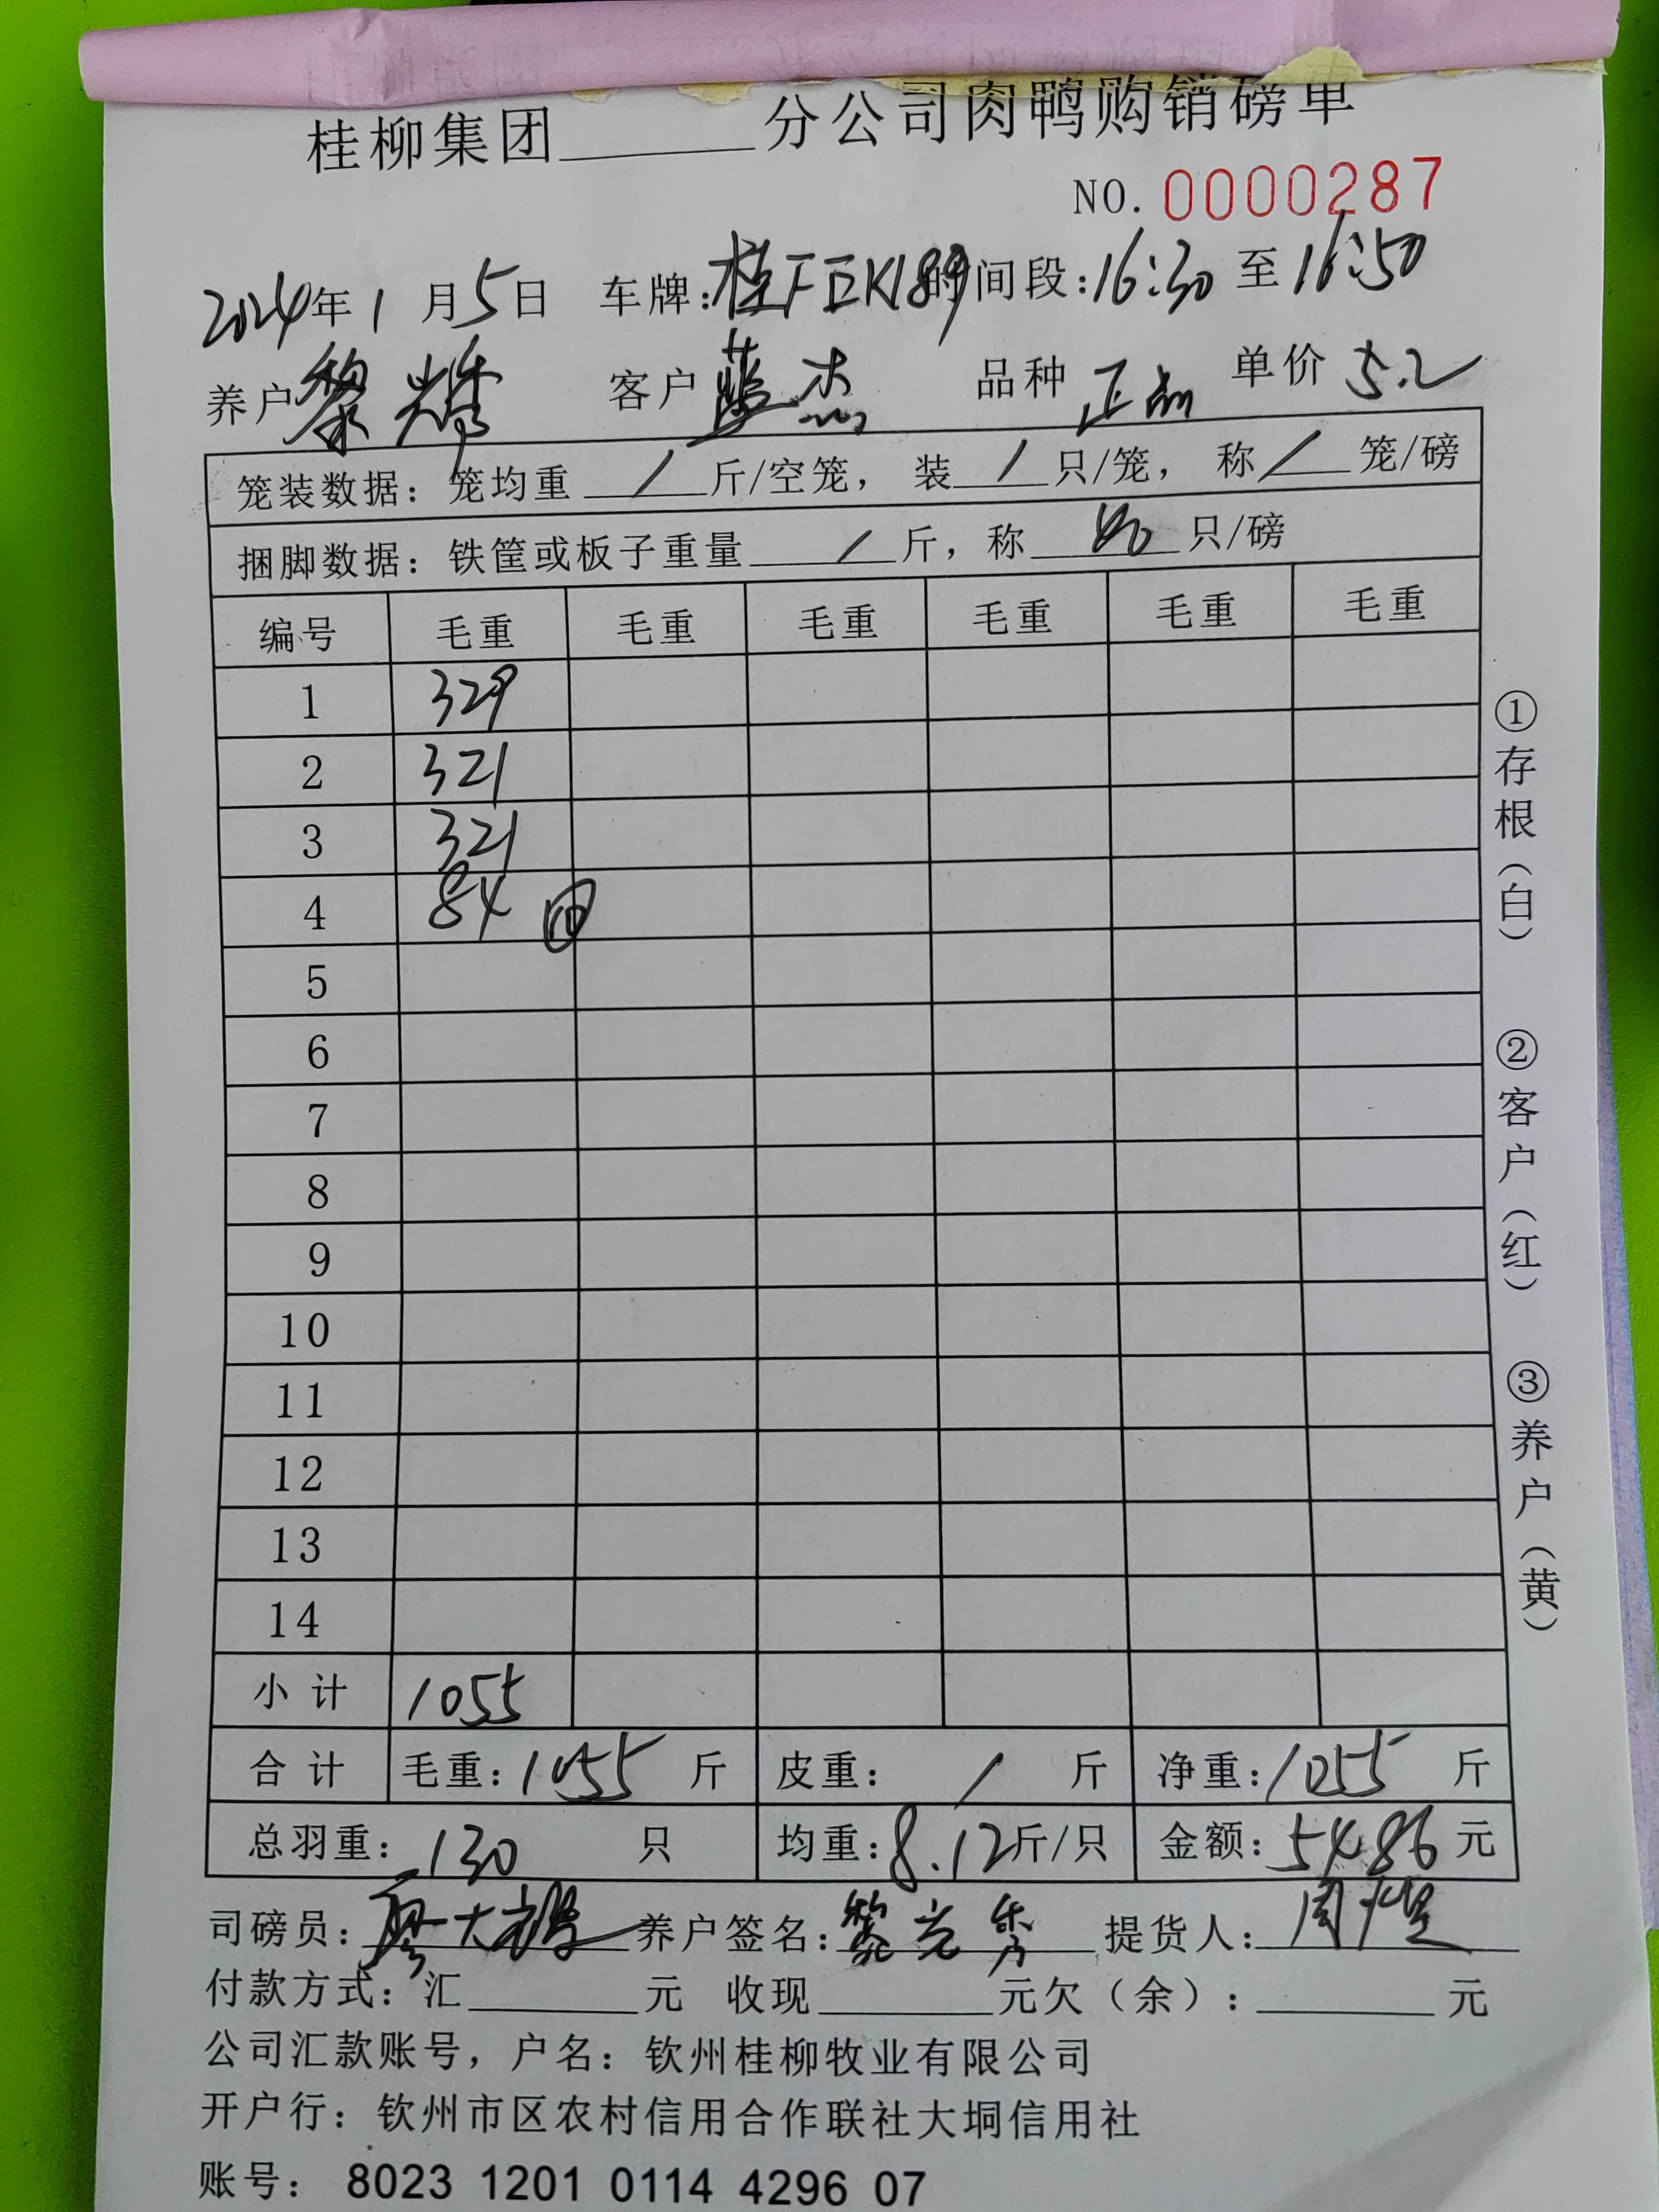 桂柳集团______分公司肉鸭购销磅单
NO. 0000287
2024年1月5日 车牌:桂FEK189 时间段:16:30至16:50
养户 黎辉 客户 蓝杰 品种 正品 单价 5.2
笼装数据：笼均重 / 斤/空笼，装 / 只/笼，称 / 笼/磅
捆脚数据：铁筐或板子重量 / 斤，称 40 只/磅
编号 毛重 毛重 毛重 毛重 毛重 毛重
1 329
2 321
3 321
4 84 ⑩
5
6
7
8
9
10
11
12
13
14
小计 1055
合计 毛重：1055 斤 皮重： / 斤 净重：1055 斤
总羽重：130 只 均重：8.12斤/只 金额：5486元
司磅员： 养户签名： 提货人：
付款方式：汇______元 收现______元欠（余）：______元
公司汇款账号，户名：钦州桂柳牧业有限公司
开户行：钦州市区农村信用合作联社大垌信用社
账号：8023 1201 0114 4296 07
①存根（白）
②客户（红）
③养户（黄）